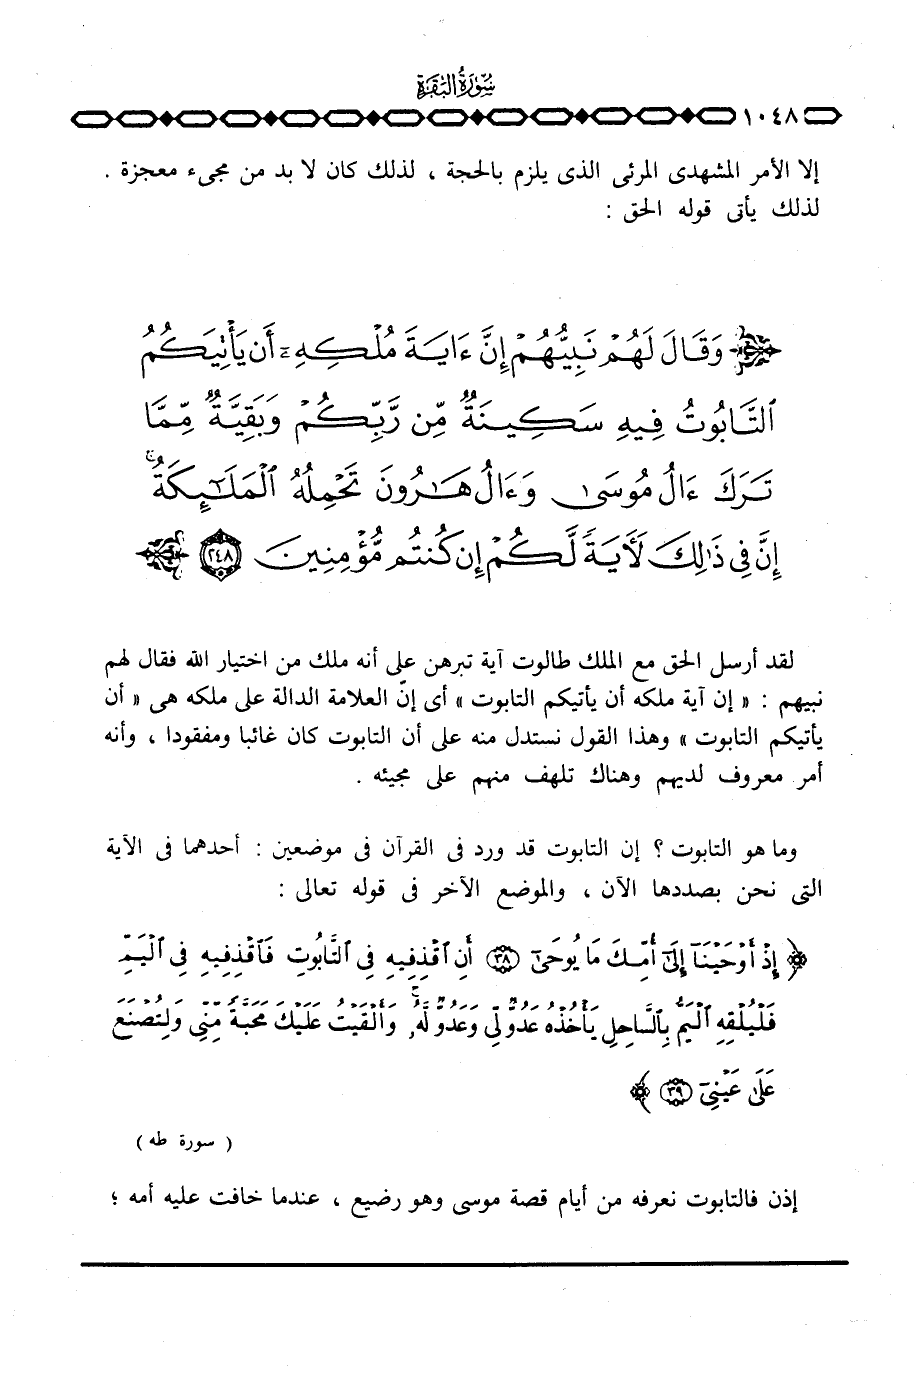 سُورَةُ البَقَرَة
١٠٤٨
إلا الأمر المشهدى المرئى الذى يلزم بالحجة ، لذلك كان لا بد من مجىء معجزة .
لذلك يأتى قوله الحق :
وَقَالَ لَهُمْ نَبِيُّهُمْ إِنَّ ءَايَةَ مُلْكِهِۦٓ أَن يَأْتِيَكُمُ
ٱلتَّابُوتُ فِيهِ سَكِينَةٌ مِّن رَّبِّكُمْ وَبَقِيَّةٌ مِّمَّا
تَرَكَ ءَالُ مُوسَىٰ وَءَالُ هَـٰرُونَ تَحْمِلُهُ ٱلْمَلَـٰٓئِكَةُ ۚ
إِنَّ فِى ذَٰلِكَ لَـَٔايَةً لَّكُمْ إِن كُنتُم مُّؤْمِنِينَ ٢٤٨
لقد أرسل الحق مع الملك طالوت آية تبرهن على أنه ملك من اختيار الله فقال لهم
نبيهم : « إن آية ملكه أن يأتيكم التابوت » أى إنّ العلامة الدالة على ملكه هى « أن
يأتيكم التابوت » وهذا القول نستدل منه على أن التابوت كان غائبا ومفقودا ، وأنه
أمر معروف لديهم وهناك تلهف منهم على مجيئه .
وما هو التابوت ؟ إن التابوت قد ورد فى القرآن فى موضعين : أحدهما فى الآية
التى نحن بصددها الآن ، والموضع الآخر فى قوله تعالى :
﴿ إِذْ أَوْحَيْنَآ إِلَىٰٓ أُمِّكَ مَا يُوحَىٰٓ ٣٨ أَنِ ٱقْذِفِيهِ فِى ٱلتَّابُوتِ فَٱقْذِفِيهِ فِى ٱلْيَمِّ
فَلْيُلْقِهِ ٱلْيَمُّ بِٱلسَّاحِلِ يَأْخُذْهُ عَدُوٌّ لِّى وَعَدُوٌّ لَّهُۥ ۚ وَأَلْقَيْتُ عَلَيْكَ مَحَبَّةً مِّنِّى وَلِتُصْنَعَ
عَلَىٰ عَيْنِىٓ ٣٩ ﴾
( سورة طه )
إذن فالتابوت نعرفه من أيام قصة موسى وهو رضيع ، عندما خافت عليه أمه ؛